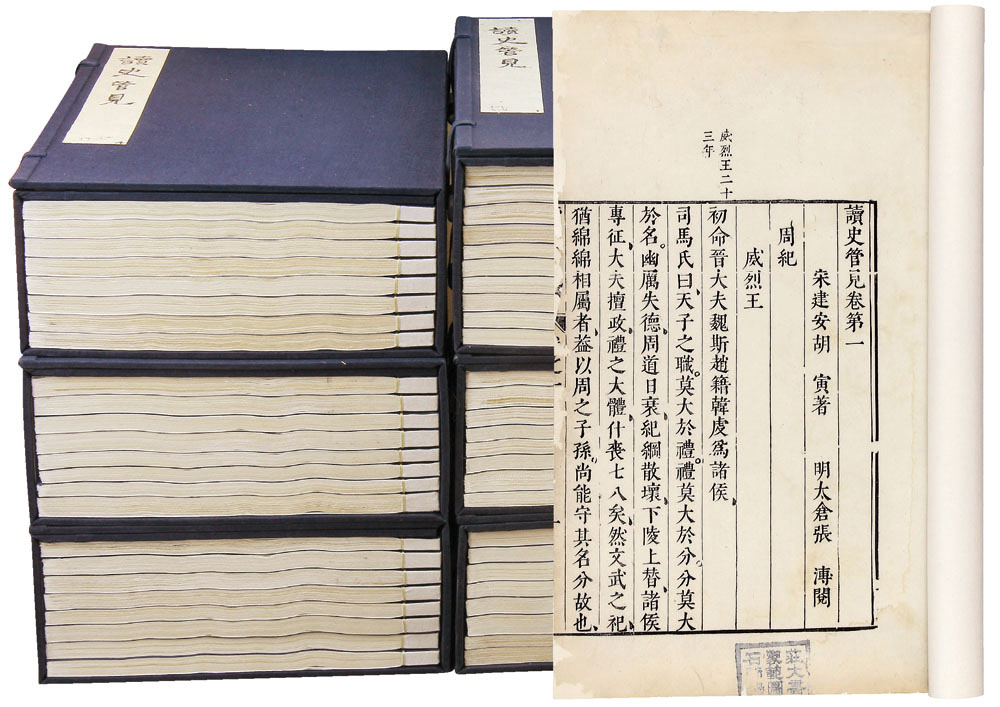 讀史管見
讀史管見
威烈王二十
三年
讀史管見卷第一
宋建安胡　寅著　明太倉張　溥閱
周紀
威烈王
初命晉大夫魏斯趙籍韓虔爲諸侯、
司馬氏曰、天子之職。莫大於禮。禮莫大於分。分莫大
於名。幽厲失德、周道日衰、紀綱散壞、下陵上替、諸侯
專征、大夫擅政、禮之大體、什喪七八矣、然文武之祀、
猶綿綿相屬者、葢以周之子孫、尚能守其名分故也、